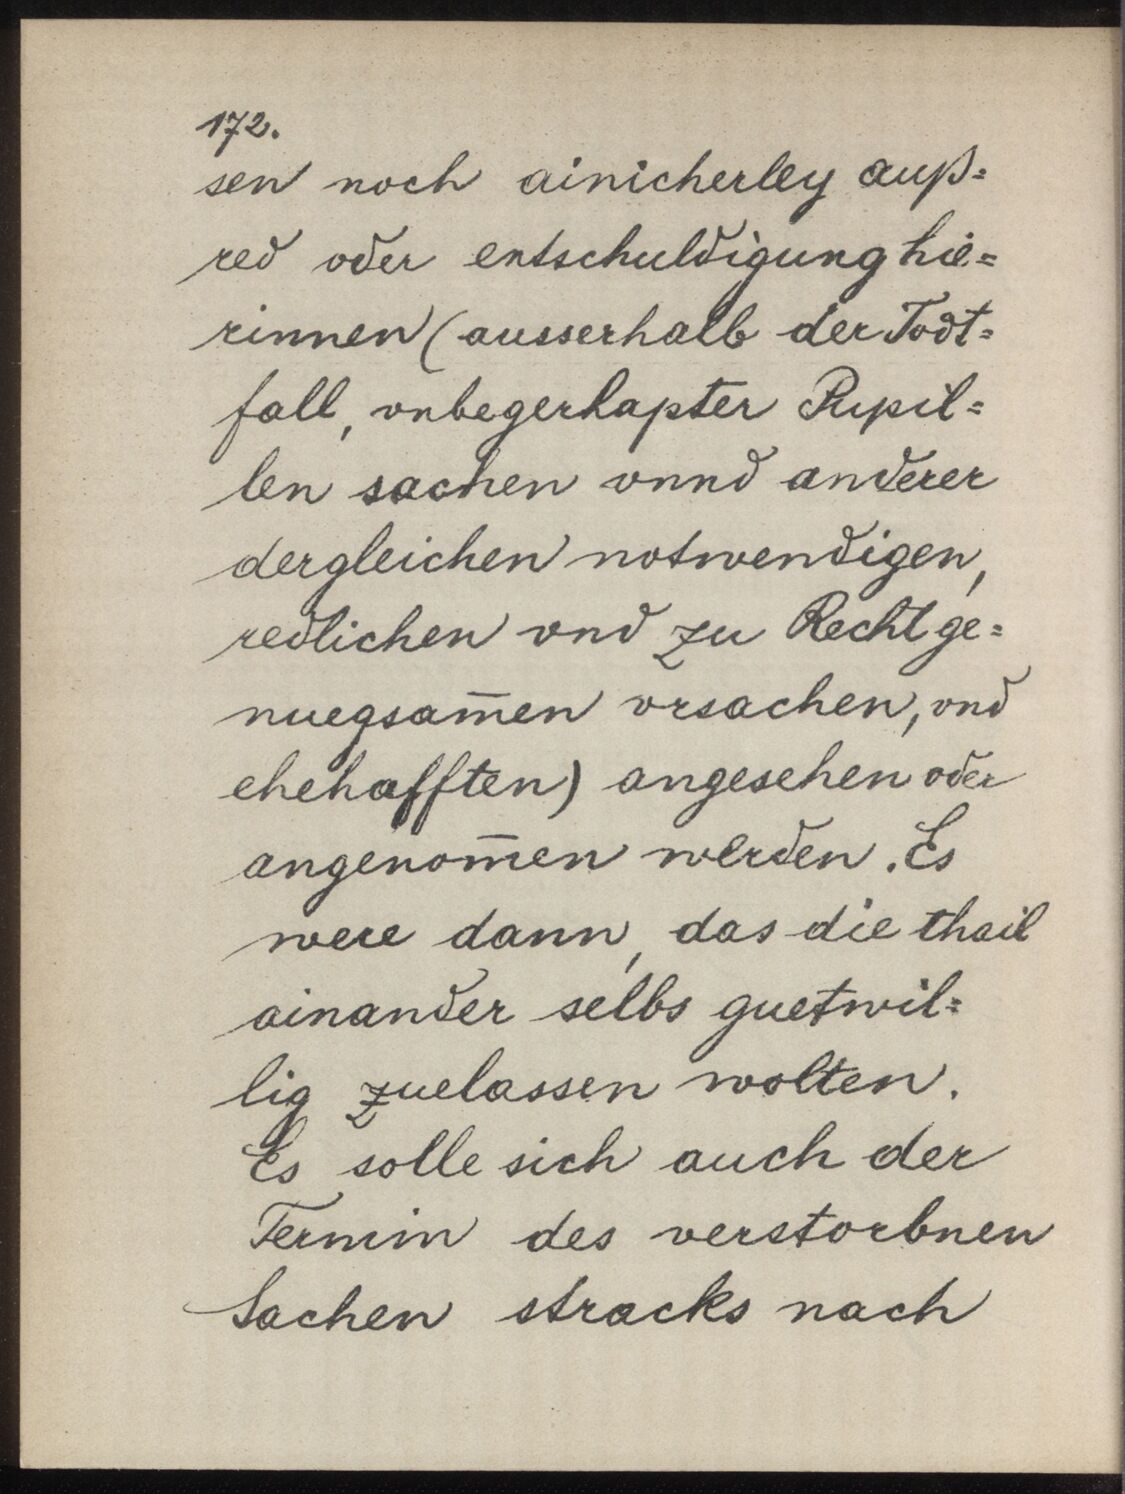 172.
sen noch ainicherley auß=
red oder entschuldigung hie=
rinnen (ausserhalb der Todt=
fall, vnbegerhapter Pupil=
len sachen vnnd anderer
dergleichen notwendigen,
redlichen vnd zu Recht ge=
nuegsam̄en vrsachen, vnd
ehehafften) angesehen oder
angenom̄en werden. Es
were dann, das die thail
ainander selbs guetwil=
lig zuelassen wolten.
Es solle sich auch der
Termin des verstorbnen
Sachen stracks nach